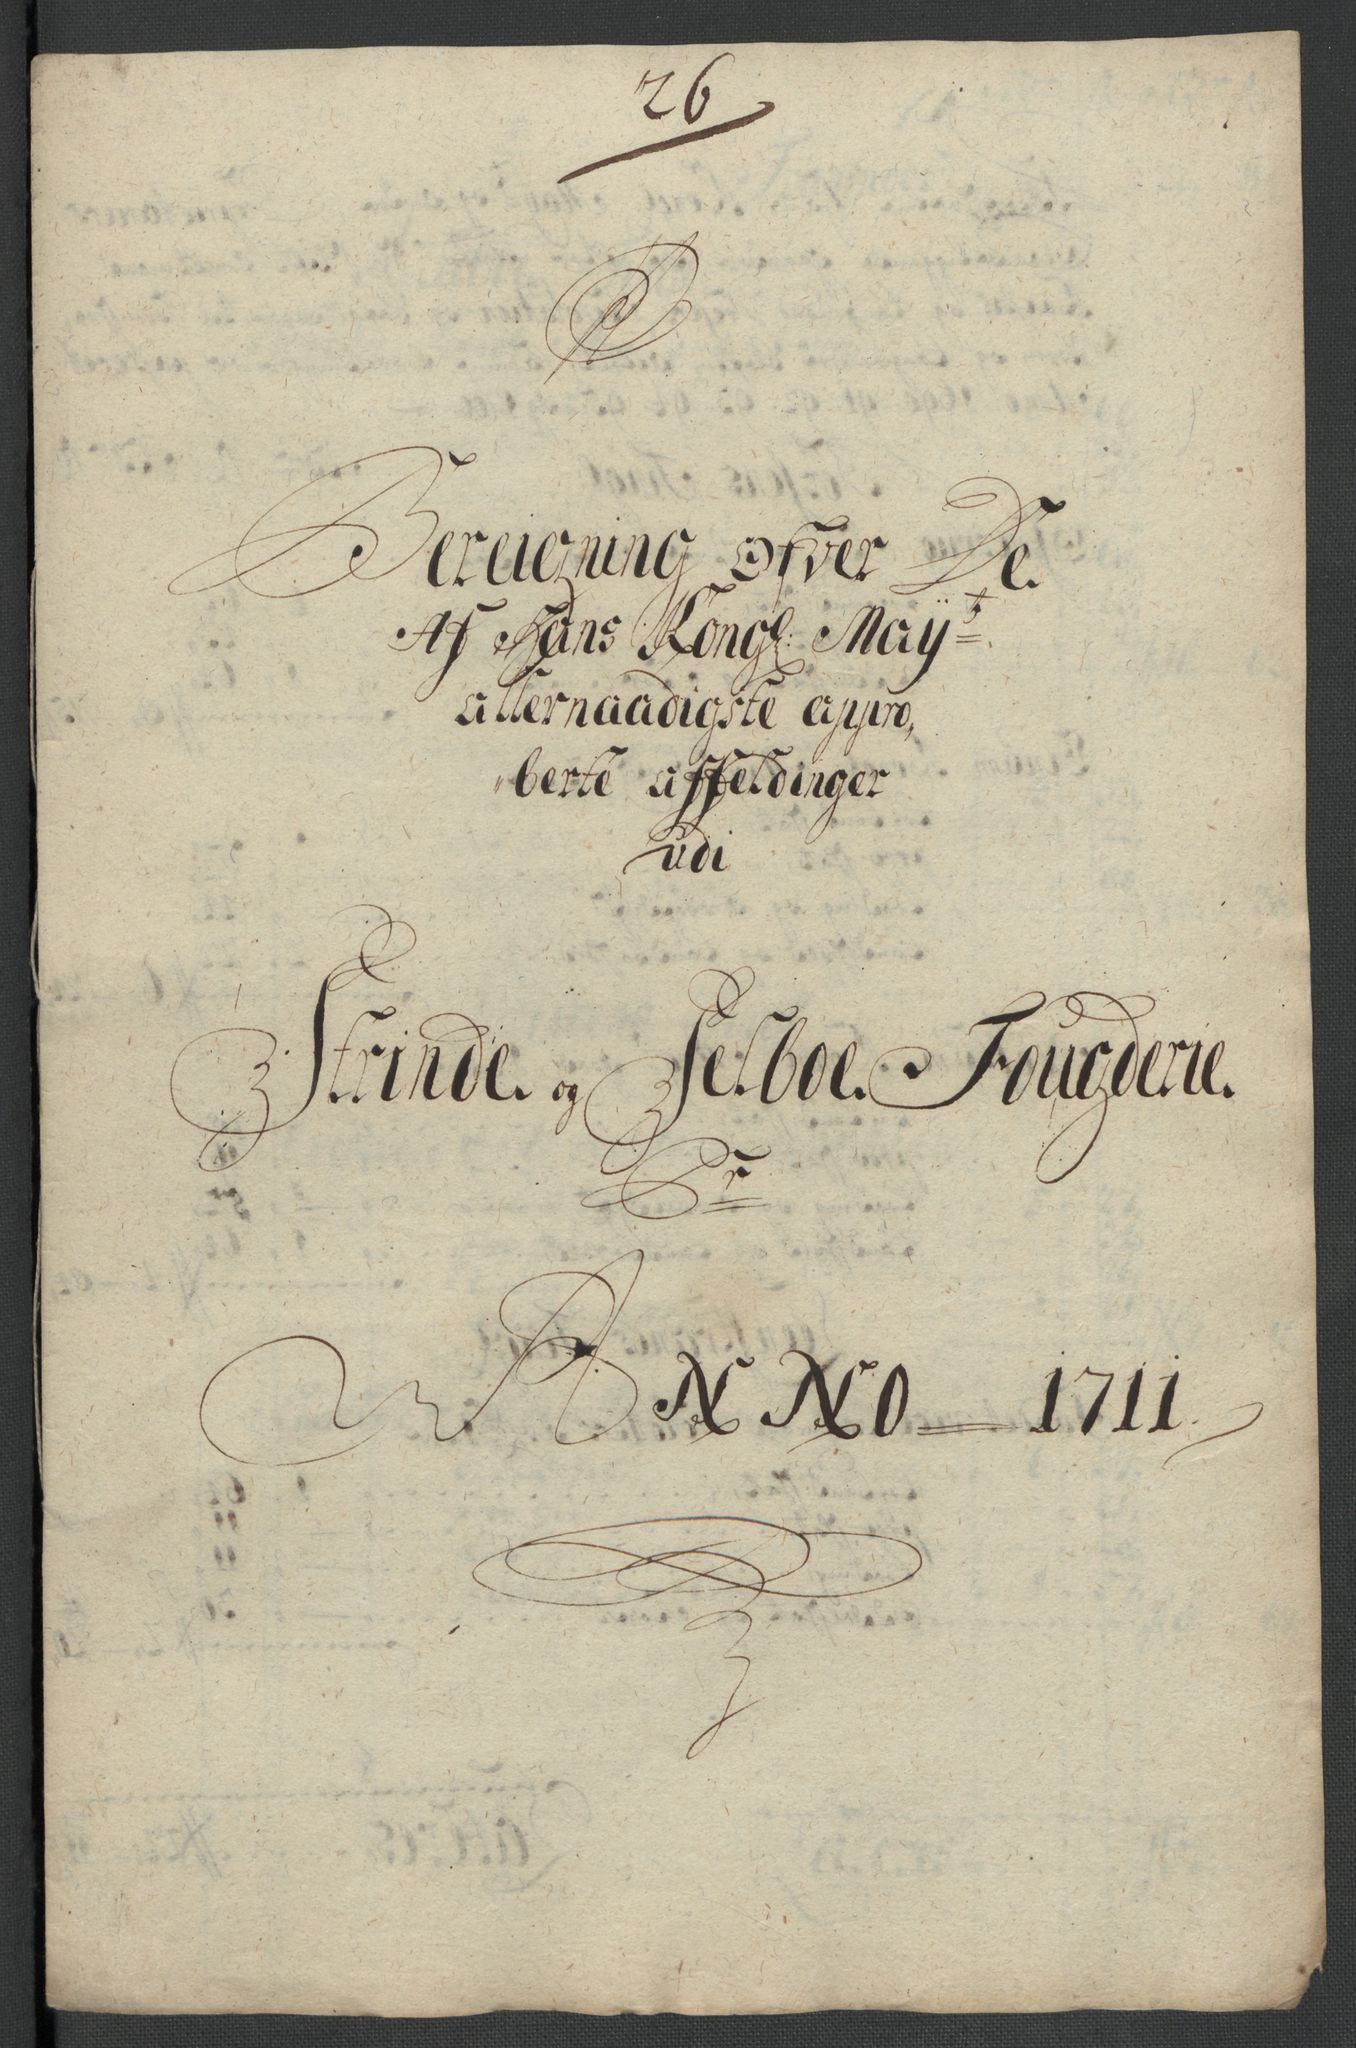 26
Bereigning ofver De
Af Hans Kongl: Mayts
allernaadigste appro,
berte affeldinger
udi
Strinde og Selboe Fougderie.
Pr
ANNO 1711.